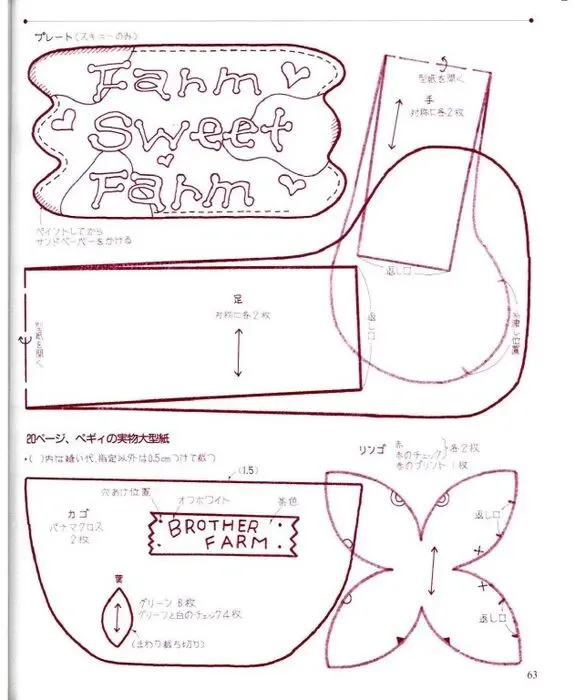 プレート(スキューのみ)
Farm
Sweet
Farm
ペイントしてから
サンドペーパーをかける
型紙を開く
手
対称に各2枚
返し口
足
対称に各2枚
返し口
型紙を開く
20ページ、ペギィの実物大型紙
•( )内は縫い代、指定以外は0.5cmつけて裁つ
(1.5)
穴あけ位置
オフホワイト
茶色
カゴ
パナマクロス
2枚
BROTHER
FARM
葉
グリーン8枚
グリーンと白のチェック4枚
(まわり裁ち切り)
リンゴ
赤
赤のチェック
各2枚
赤のプリント1枚
返し口
返し口
63